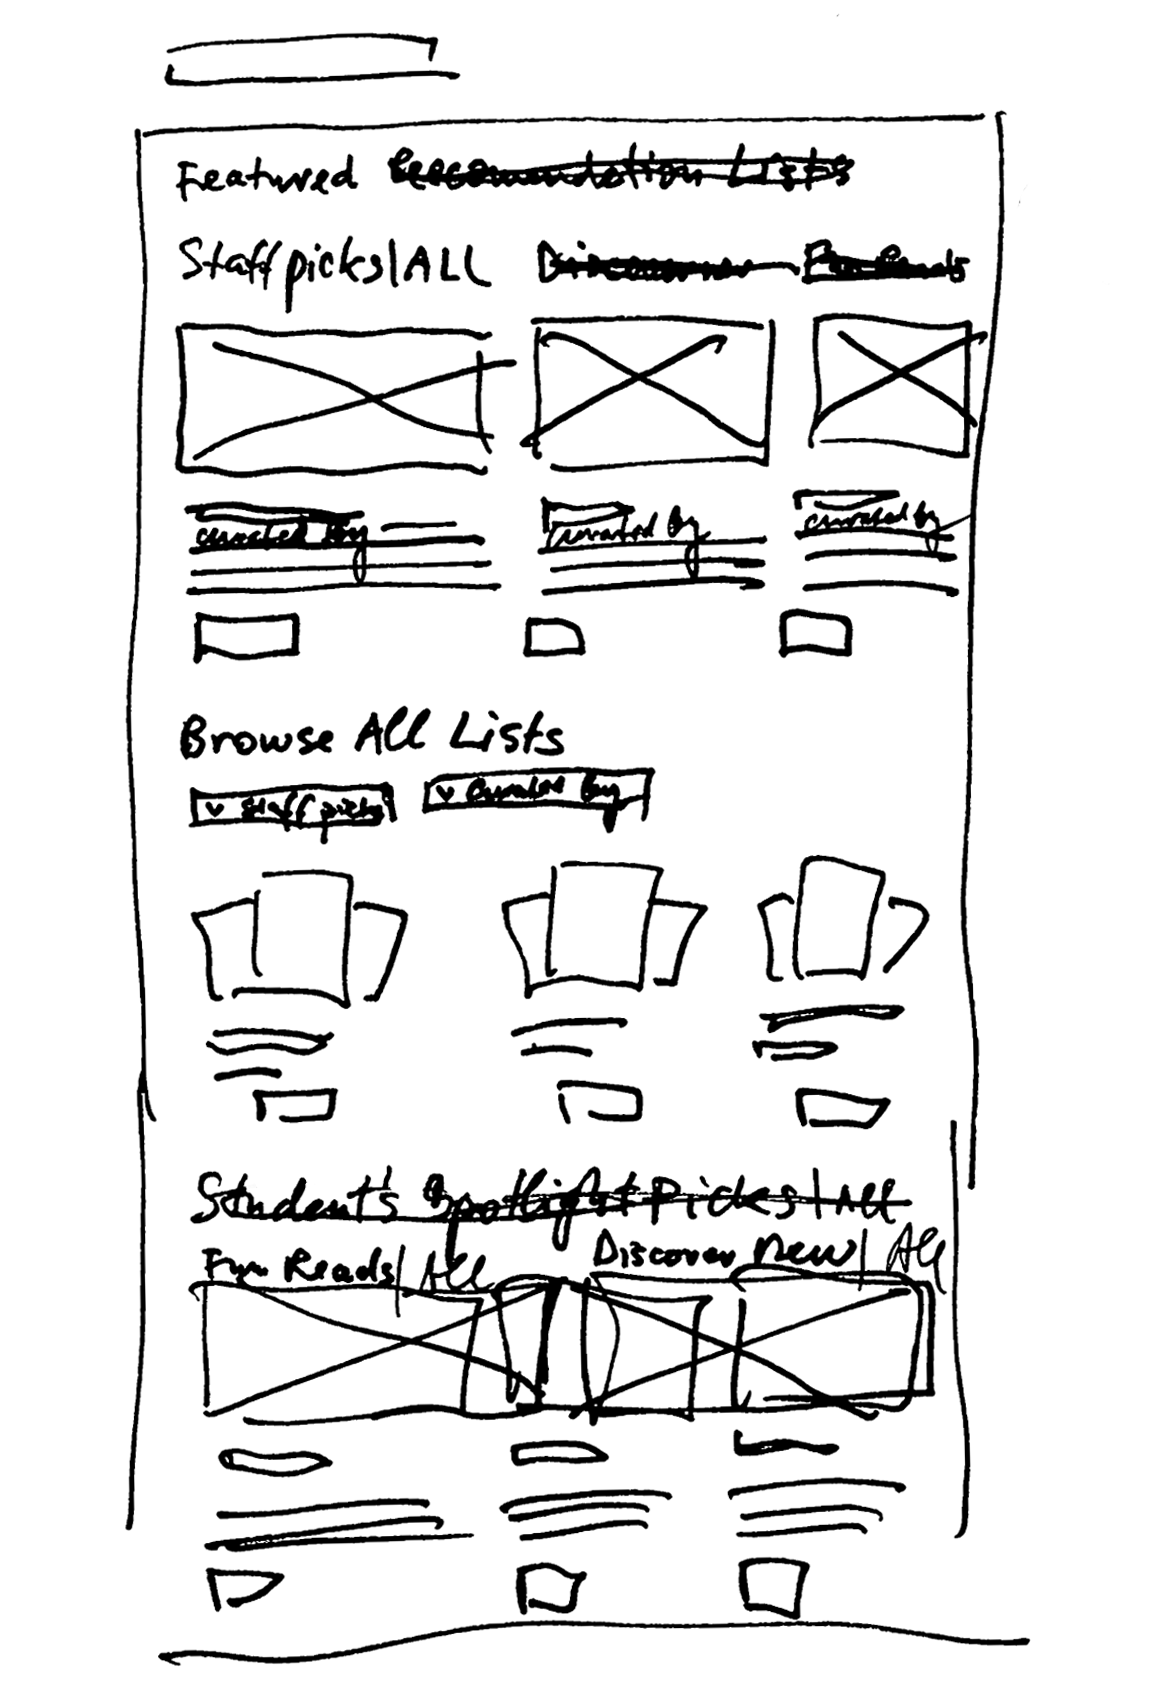 Featured Recomendation Lists
Staff picks | ALL Discover Fun Reads
curated by curated by curated by
Browse All Lists
v Staff picks v Curated by
Student's Spotlight Picks | All
Fun Reads | All Discover New | All